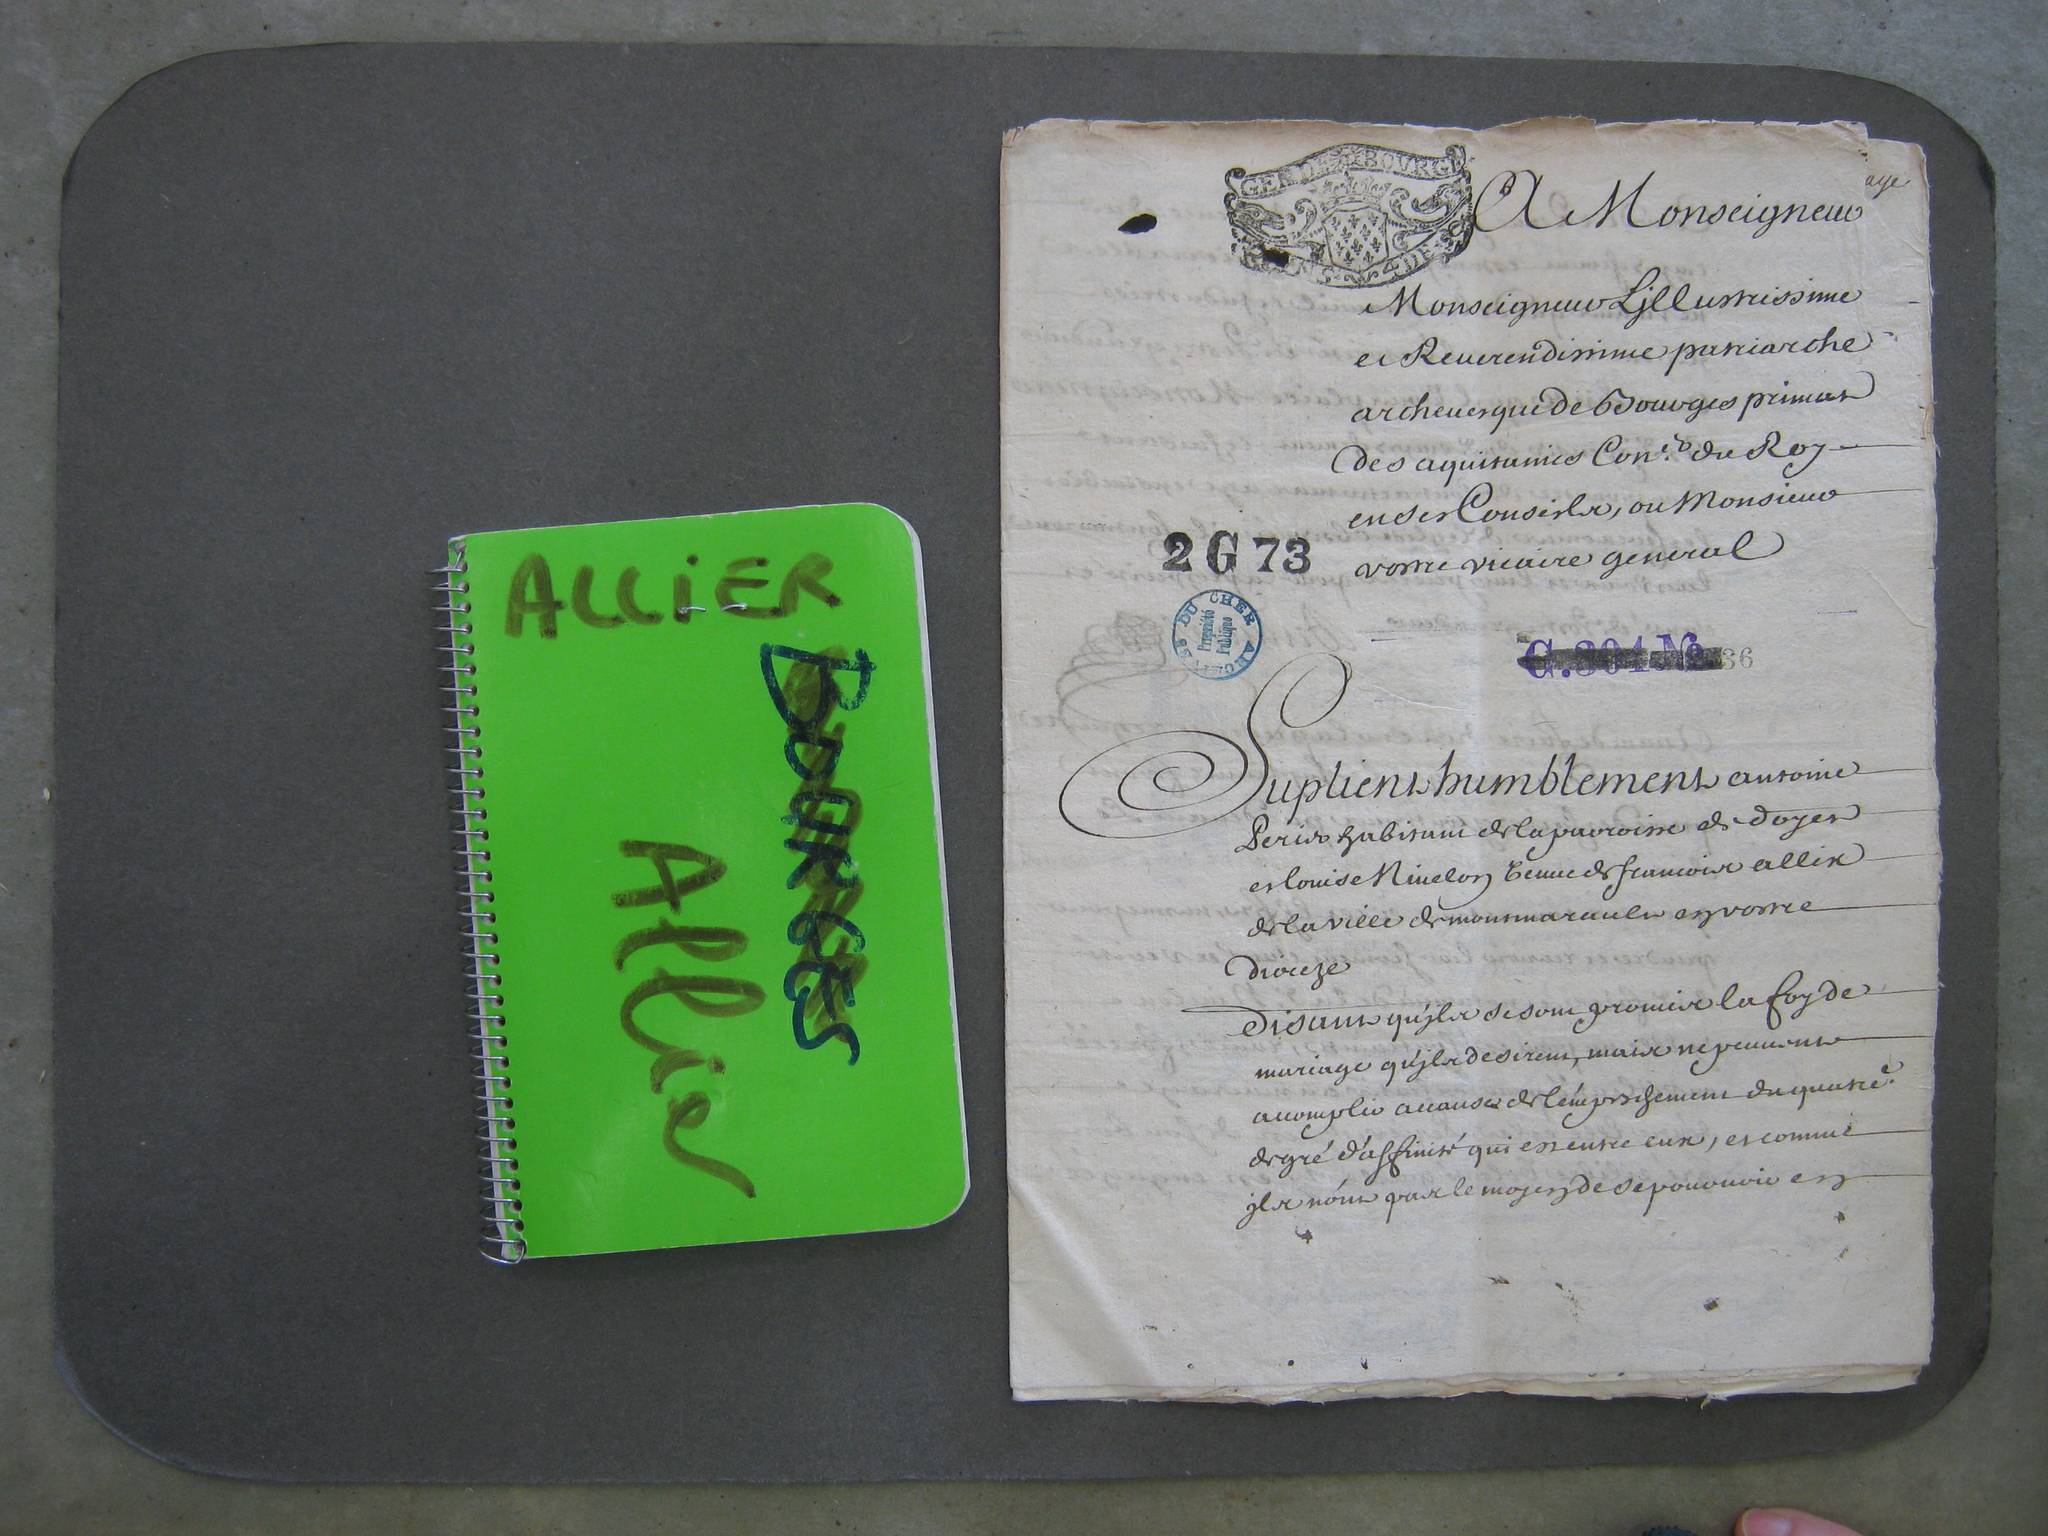 ALLiER
BOURGES
Allier
GEN DE BOURG
aye
A Monseigneur
Monseigneur Ljllustrissime
et Reuerendissime patriarche
archeuesque de Bourges primat
des aquitanies Con.er du Roy
en ses Conseils, ou Monsieur
vostre vicaire general
2 G 73
DU CHER ARCH
Propriété
Publique
C. 304 No 36
Suplient humblement antoine
Perir habitant de la parroisse de doyet
et louise Niuelon veuue de francois allix
de la ville de montmarault en vostre
dioceze
disant qu'jls se sont promis la foy de
mariage qu'jls desirent, mais ne peuuent
acomplir a cause de l'émpeschement du quatre.e
degré d'affinité qui est entre eux, et comme
jls n'ónt pas le moyen de se pouruoir en